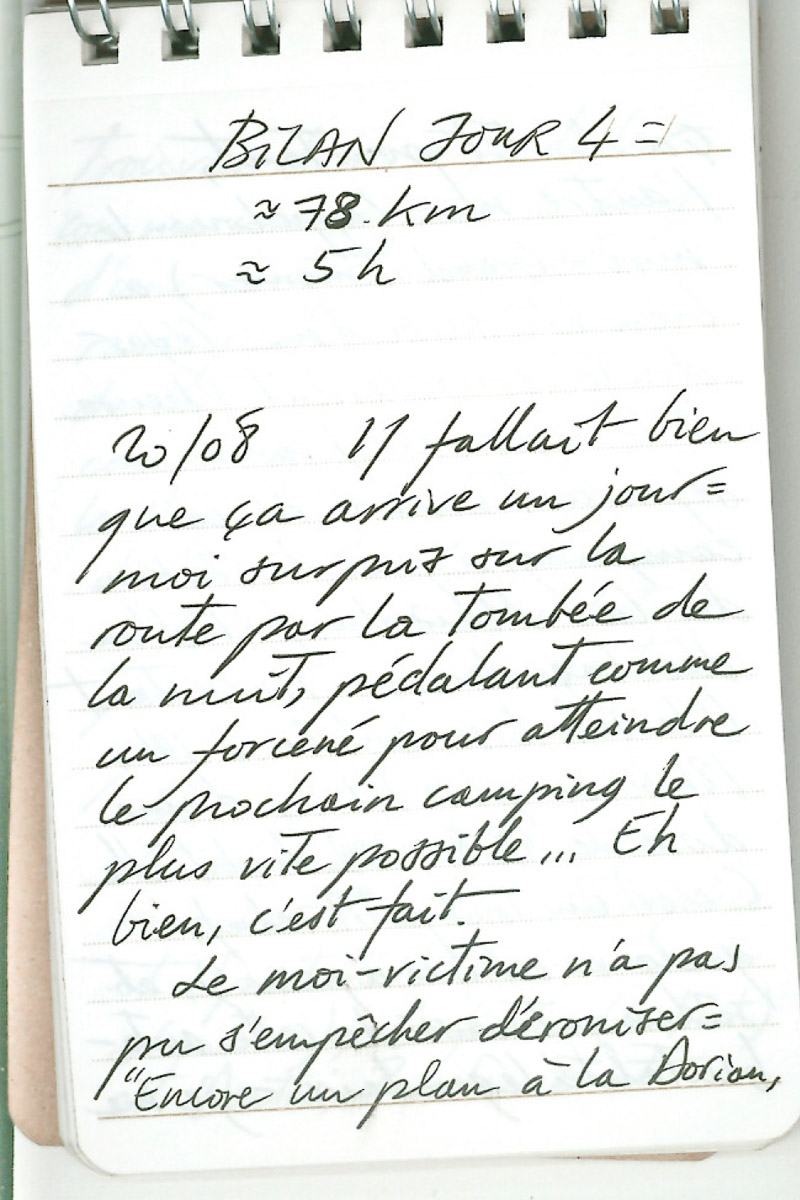 BILAN JOUR 4 =
≈ 78 km
≈ 5h
20/08 Il fallait bien
que ça arrive un jour =
moi surpris sur la
route par la tombée de
la nuit, pédalant comme
un forcené pour atteindre
le prochain camping le
plus vite possible... Eh
bien, c'est fait.
Le moi-victime n'a pas
pu s'empêcher d'ironiser =
"Encore un plan à la Dorian,